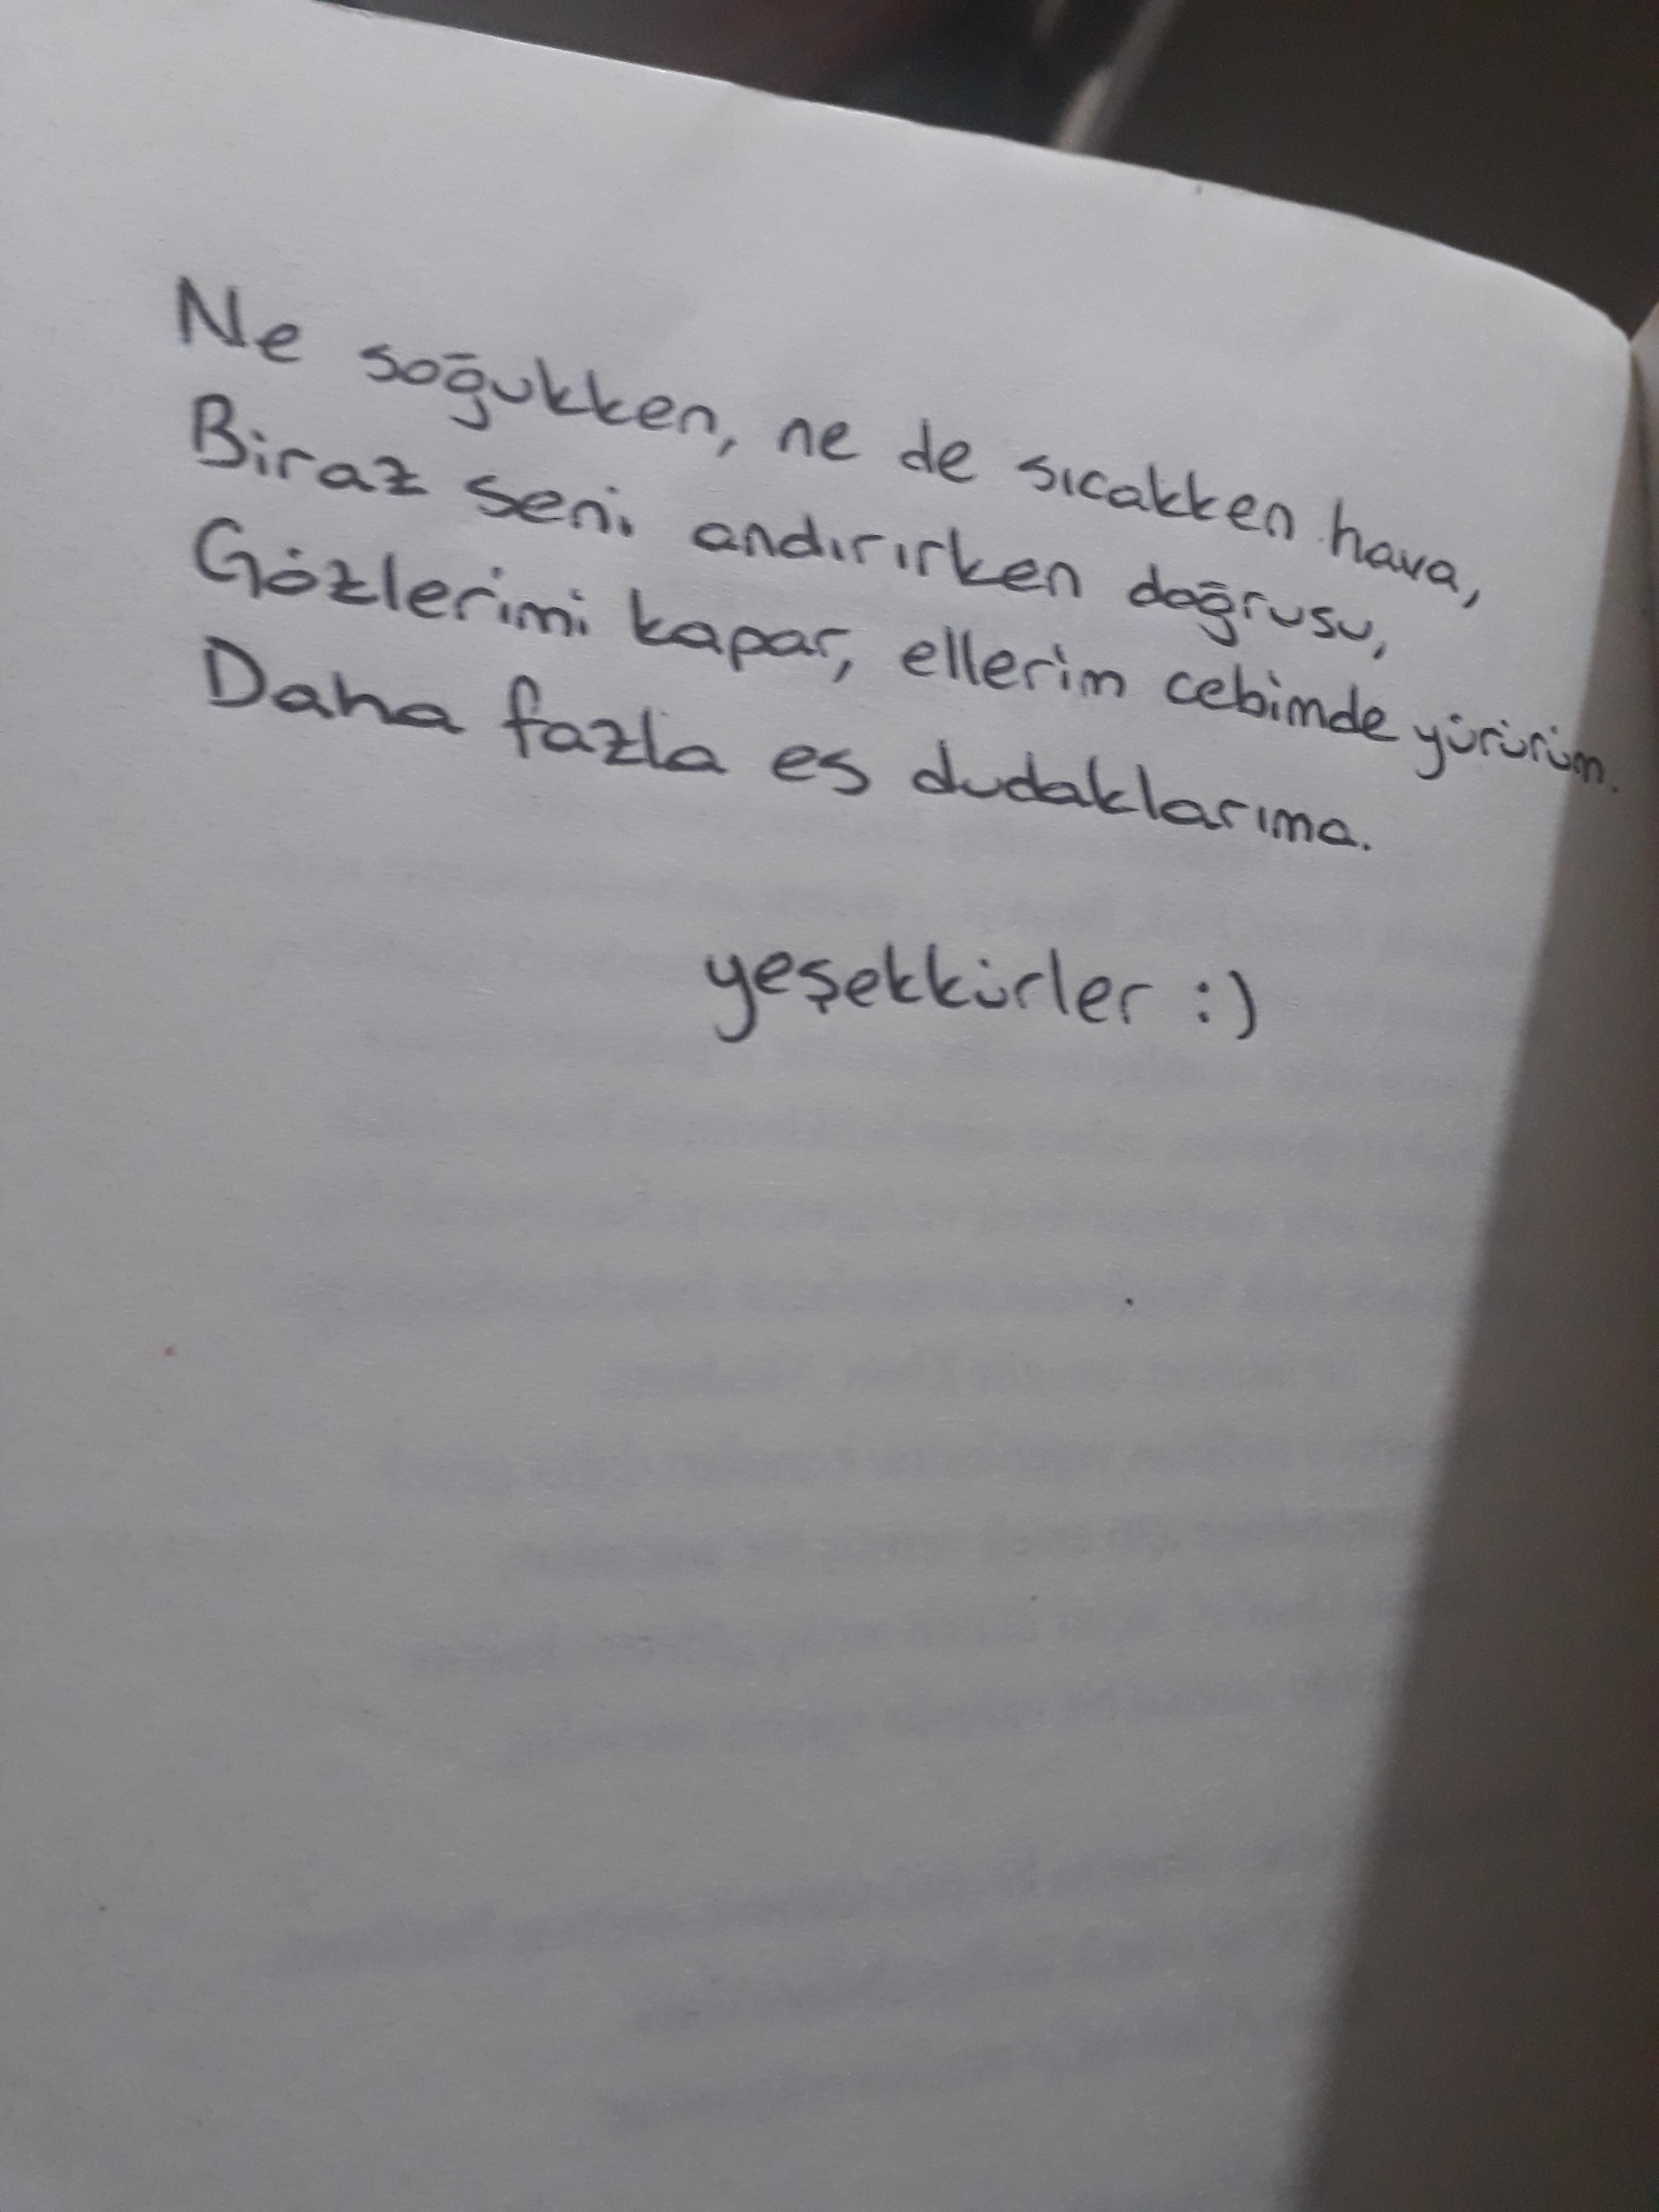 Ne soğukken, ne de sıcakken hava,
Biraz seni andırırken doğrusu,
Gözlerimi kapar, ellerim cebimde yürürüm.
Daha fazla es dudaklarıma.
yeşekkürler :)